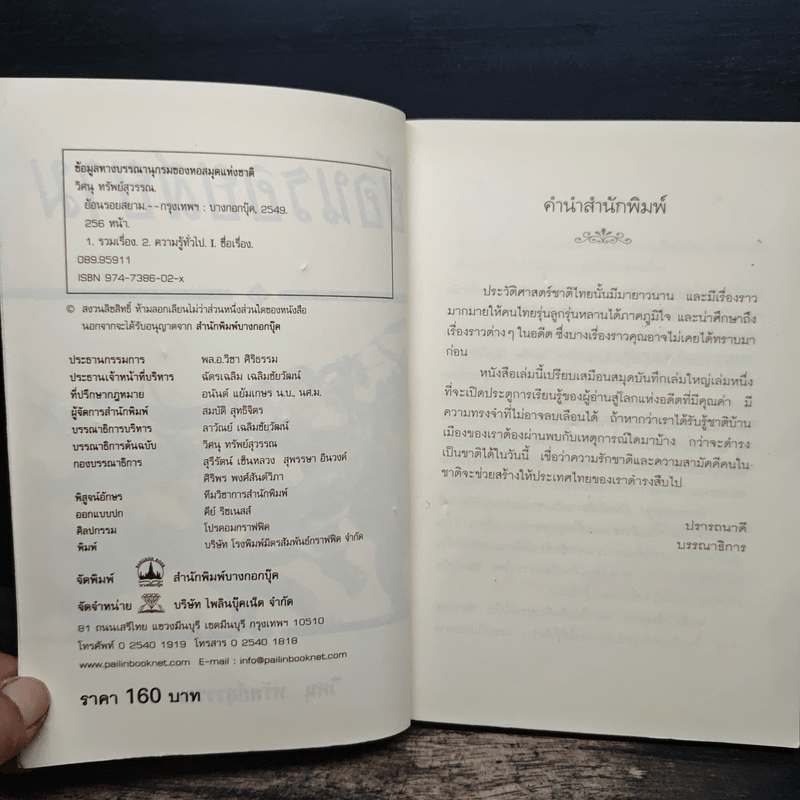 ข้อมูลทางบรรณานุกรมของหอสมุดแห่งชาติ
วิศนุ ทรัพย์สุวรรณ.
ย้อนรอยสยาม.--กรุงเทพฯ : บางกอกบุ๊ค, 2549.
256 หน้า.
1. รวมเรื่อง. 2. ความรู้ทั่วไป. I. ชื่อเรื่อง.
089.95911
ISBN 974-7386-02-x
© สงวนลิขสิทธิ์ ห้ามลอกเลียนไม่ว่าส่วนหนึ่งส่วนใดของหนังสือ
นอกจากจะได้รับอนุญาตจาก สำนักพิมพ์บางกอกบุ๊ค
ประธานกรรมการ พล.อ.วิชา ศิริธรรม
ประธานเจ้าหน้าที่บริหาร ฉัตรเฉลิม เฉลิมชัยวัฒน์
ที่ปรึกษากฎหมาย อนันต์ แย้มเกษร น.บ., นศ.ม.
ผู้จัดการสำนักพิมพ์ สมบัติ สุทธิจิตร
บรรณาธิการบริหาร ลาวัณย์ เฉลิมชัยวัฒน์
บรรณาธิการต้นฉบับ วิศนุ ทรัพย์สุวรรณ
กองบรรณาธิการ สุรีรัตน์ เซ็นหลวง สุพรรษา อินวงค์
ศิริพร พงศ์สันต์วิภา
พิสูจน์อักษร ทีมวิชาการสำนักพิมพ์
ออกแบบปก คีย์ ริชเนสส์
ศิลปกรรม โปรคอมกราฟฟิค
พิมพ์ บริษัท โรงพิมพ์มิตรสัมพันธ์กราฟฟิค จำกัด
จัดพิมพ์ สำนักพิมพ์บางกอกบุ๊ค
จัดจำหน่าย บริษัท ไพลินบุ๊คเน็ต จำกัด
81 ถนนเสรีไทย แขวงมีนบุรี เขตมีนบุรี กรุงเทพฯ 10510
โทรศัพท์ 0 2540 1919 โทรสาร 0 2540 1818
www.pailinbooknet.com E-mail : info@pailinbooknet.com
ราคา 160 บาท
คำนำสำนักพิมพ์
ประวัติศาสตร์ชาติไทยนั้นมีมายาวนาน และมีเรื่องราว
มากมายให้คนไทยรุ่นลูกรุ่นหลานได้ภาคภูมิใจ และน่าศึกษาถึง
เรื่องราวต่างๆ ในอดีต ซึ่งบางเรื่องราวคุณอาจไม่เคยได้ทราบมา
ก่อน
หนังสือเล่มนี้เปรียบเสมือนสมุดบันทึกเล่มใหญ่เล่มหนึ่ง
ที่จะเปิดประตูการเรียนรู้ของผู้อ่านสู่โลกแห่งอดีตที่มีคุณค่า มี
ความทรงจำที่ไม่อาจลบเลือนได้ ถ้าหากว่าเราได้รับรู้ชาติบ้าน
เมืองของเราต้องผ่านพบกับเหตุการณ์ใดมาบ้าง กว่าจะดำรง
เป็นชาติได้ในวันนี้ เชื่อว่าความรักชาติและความสามัคคีคนใน
ชาติจะช่วยสร้างให้ประเทศไทยของเราดำรงสืบไป
ปรารถนาดี
บรรณาธิการ